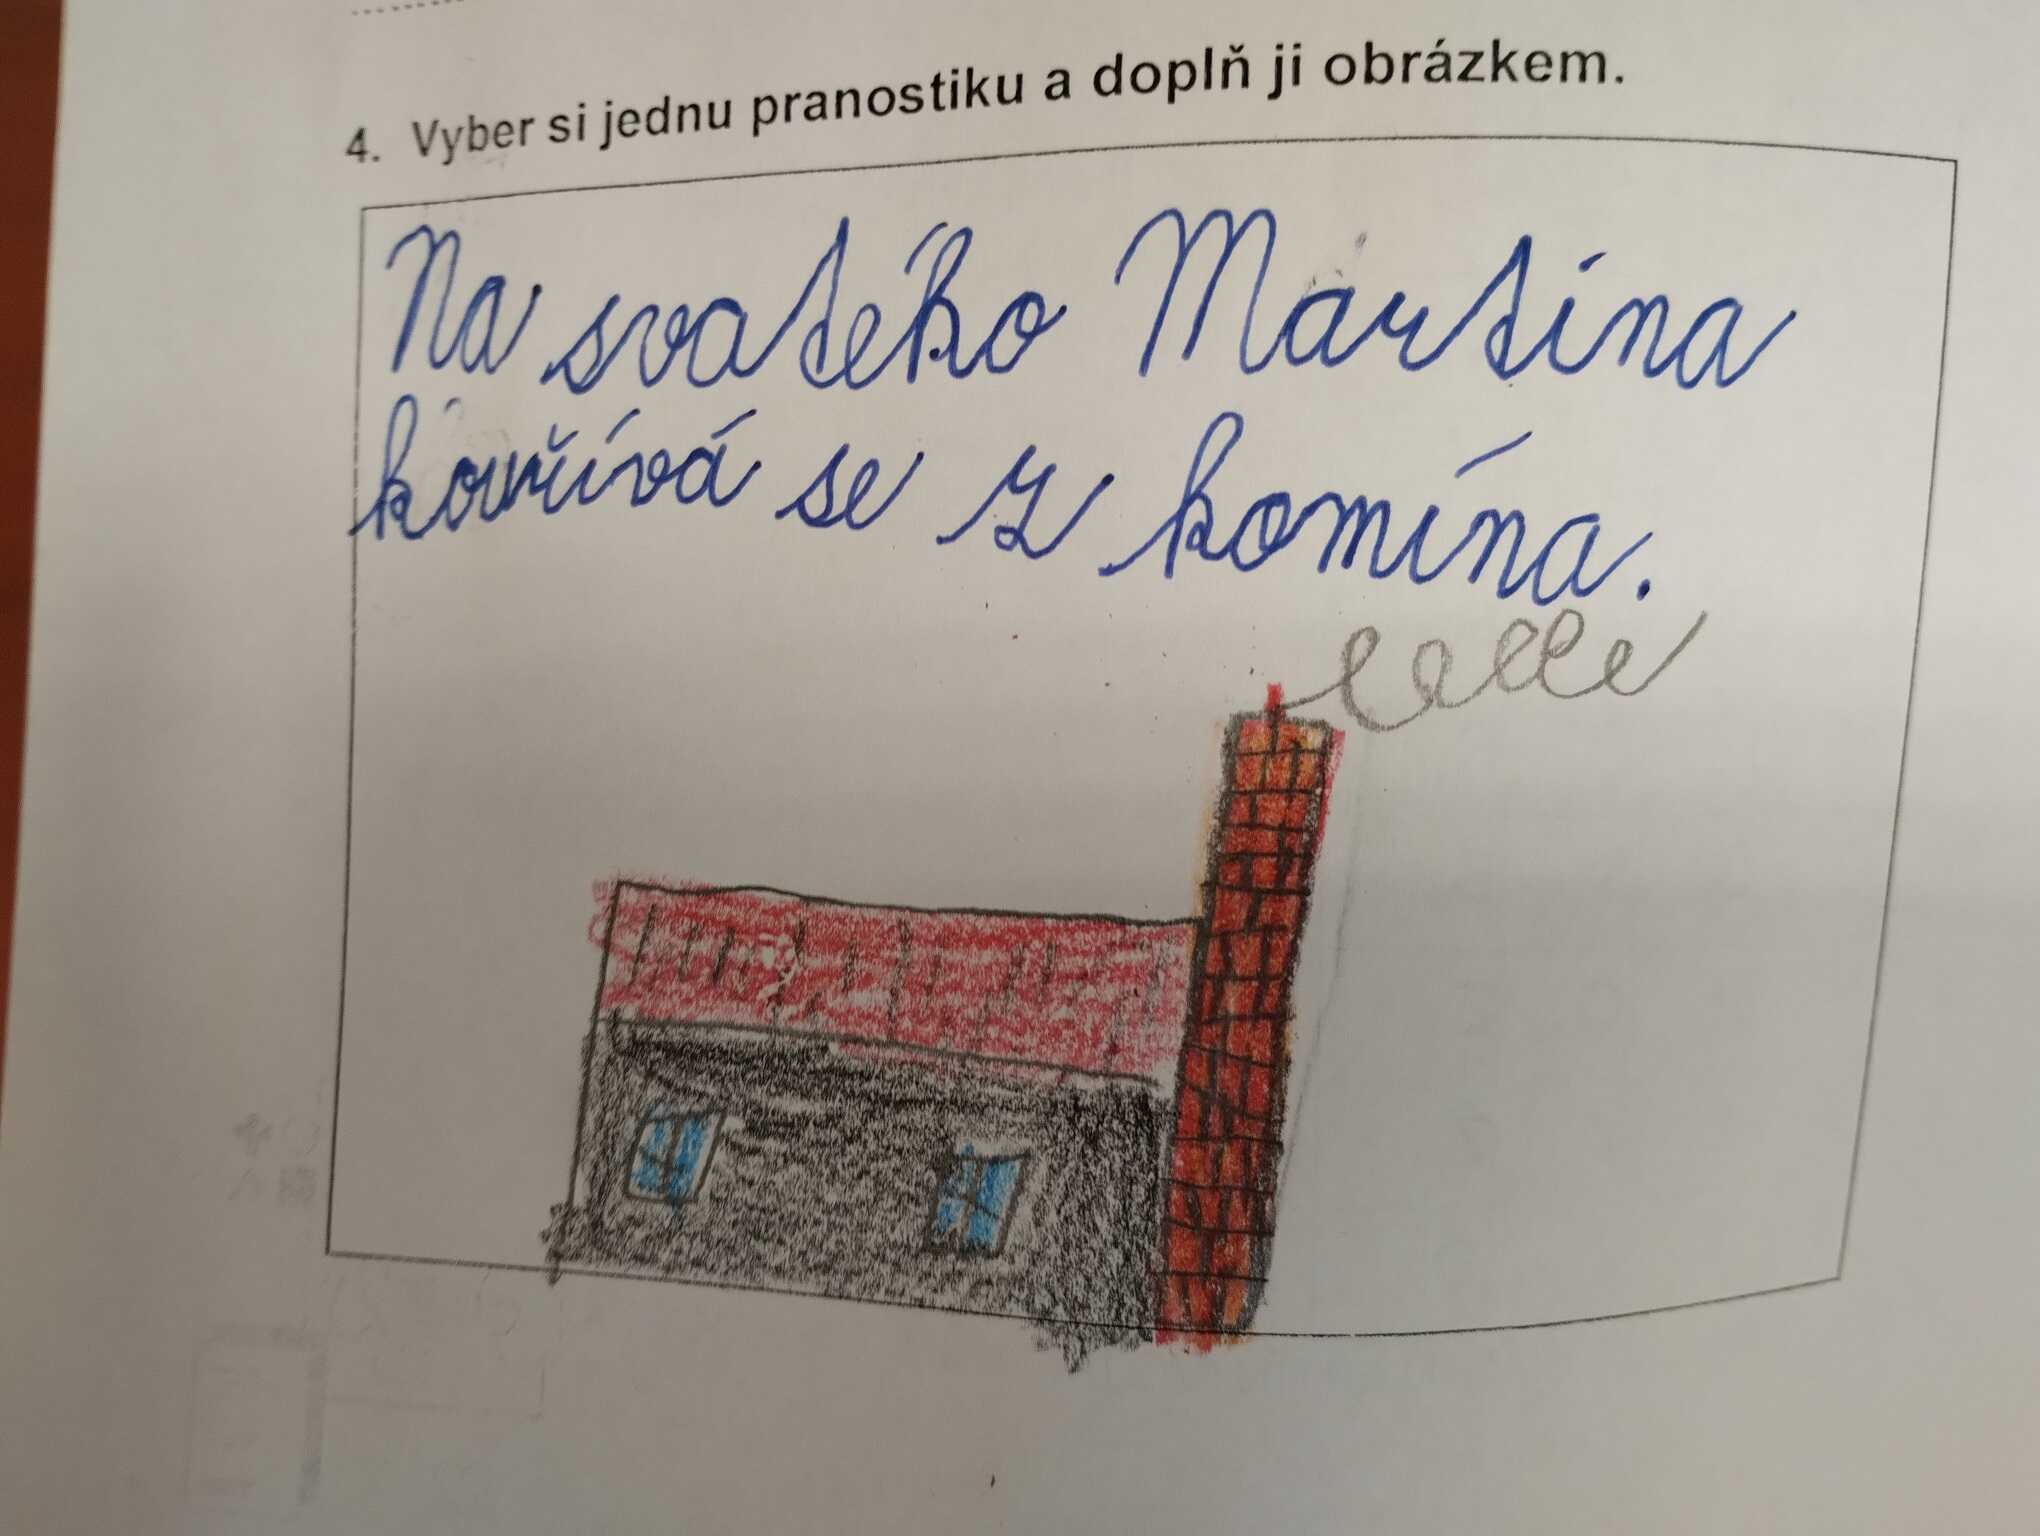 4. Vyber si jednu pranostiku a doplň ji obrázkem.
Na svatého Martina
kouřívá se z komína.